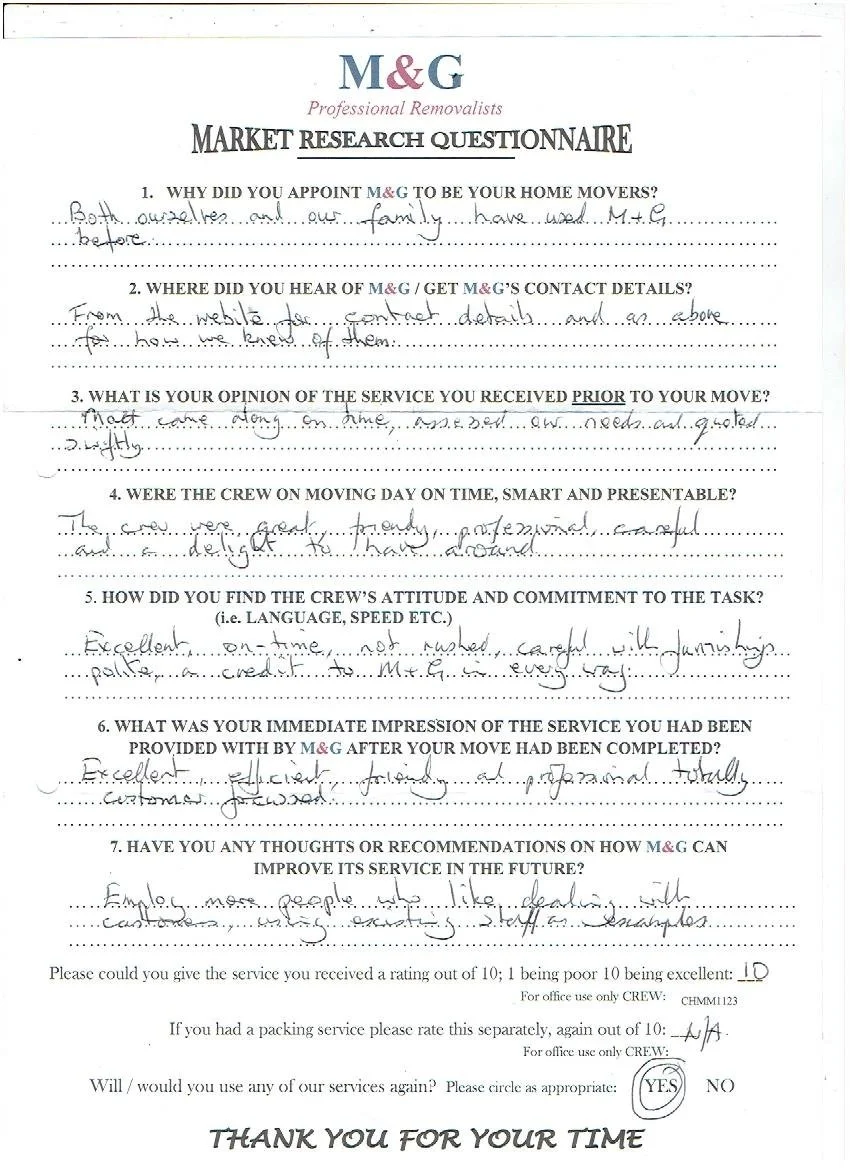 M&G
Professional Removalists
MARKET RESEARCH QUESTIONNAIRE
1. WHY DID YOU APPOINT M&G TO BE YOUR HOME MOVERS?
Both ourselves and our family have used M+G
before.
2. WHERE DID YOU HEAR OF M&G / GET M&G'S CONTACT DETAILS?
From the webite for contact details and as above
for how we knew of them.
3. WHAT IS YOUR OPINION OF THE SERVICE YOU RECEIVED PRIOR TO YOUR MOVE?
Matt came along on time, assessed our needs and quoted
swiftly
4. WERE THE CREW ON MOVING DAY ON TIME, SMART AND PRESENTABLE?
The crew were great, friendy, professional, careful
and a delight to have around
5. HOW DID YOU FIND THE CREW'S ATTITUDE AND COMMITMENT TO THE TASK?
(i.e. LANGUAGE, SPEED ETC.)
Excellent, on-time, not rushed, careful with furnishings
polite, a credit to M+G in every way.
6. WHAT WAS YOUR IMMEDIATE IMPRESSION OF THE SERVICE YOU HAD BEEN
PROVIDED WITH BY M&G AFTER YOUR MOVE HAD BEEN COMPLETED?
Excellent, efficient, friendly and professional totally
customer focussed.
7. HAVE YOU ANY THOUGHTS OR RECOMMENDATIONS ON HOW M&G CAN
IMPROVE ITS SERVICE IN THE FUTURE?
Employ more people who like dealing with
customers, using existing staff as examples
Please could you give the service you received a rating out of 10; 1 being poor 10 being excellent: 10
For office use only CREW: CHMM1123
If you had a packing service please rate this separately, again out of 10: N/A.
For office use only CREW:
Will / would you use any of our services again? Please circle as appropriate: YES NO
THANK YOU FOR YOUR TIME